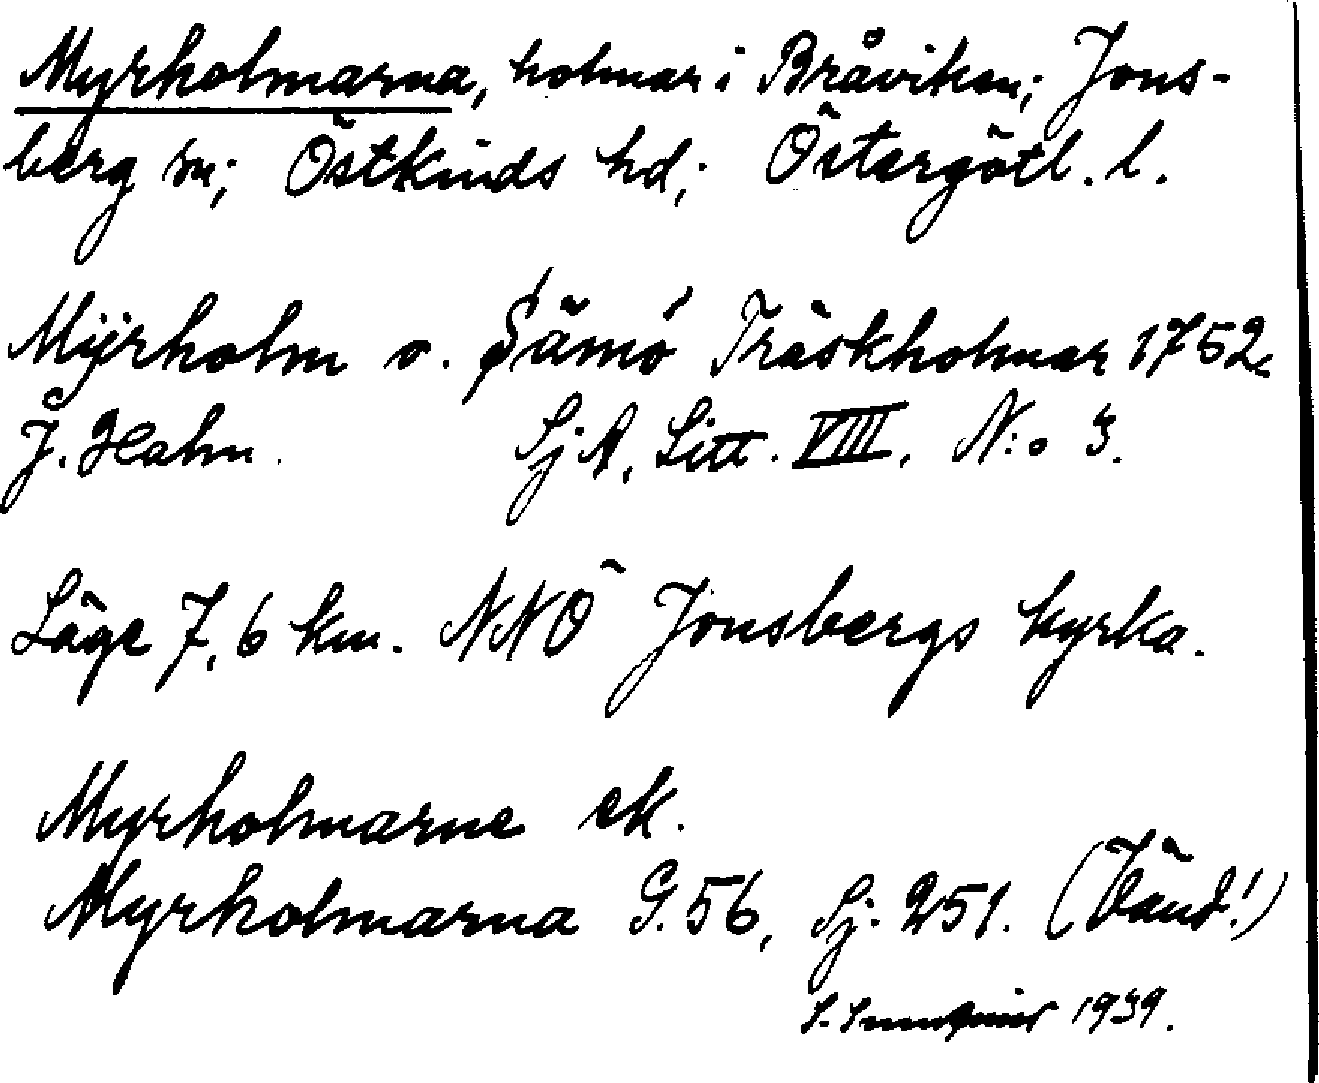 Myrholmarna, holmar i Bråviken; Jons-
berg sn; Östkinds hd; Östergötl. l.
Mÿrholm o. Sämö Träskholmar 1752.
J. Hahn. SjA, Litt. VIII, N:o 3.
Läge 7,6 km. NNO Jonsbergs kyrka.
Myrholmarne ek.
Myrholmarna G. 56, Sj. 251. (Vänd!)
S. 1939.